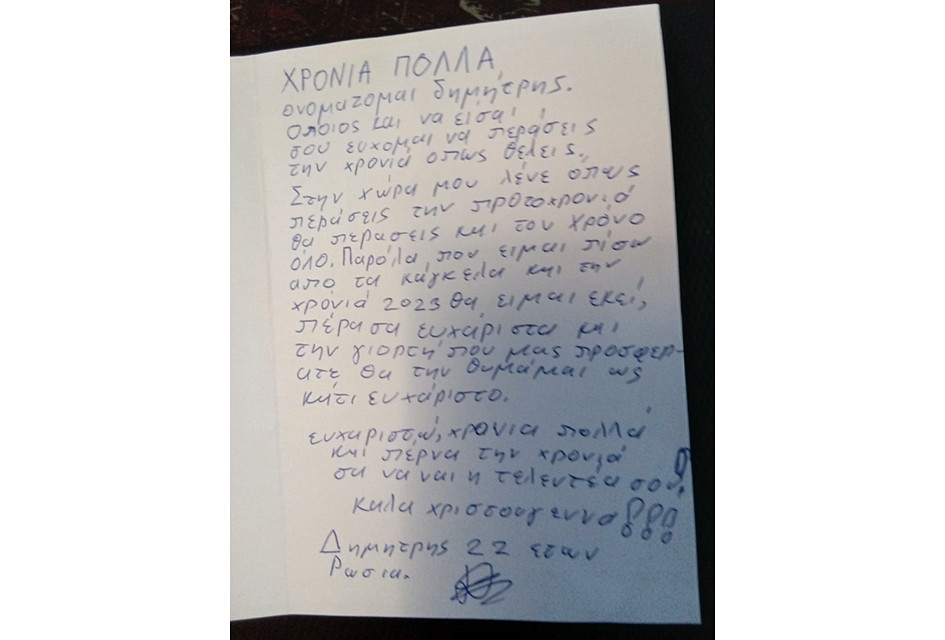 ΧΡΟΝΙΑ ΠΟΛΛΑ
ονοματομαι δημήτρης.
Οποιος και να είσαι
σου ευχομαι να περάσεις
την χρονιά οπως θελεις.
Στην χώρα μου λένε όπως
περάσεις την πρωτοχρονιά
θα περασεις και τον χρόνο
όλο. Παρόλα που ειμαι πίσω
απο τα κάγκελα και την
χρόνιά 2023 θα ειμαι εκεί,
πέρασα ευχάριστα και
την γιορτή που μας προσφερ-
ατε θα την θυμάμαι ως
κάτι ευχάριστο.
ευχαριστώ, χρόνια πολλά
και πέρνα την χρονιά
σα να ναι η τελευτέα σου!
καλα χριστουγεννα!!!
Δημητρης 22 ετων
Ρωσια.